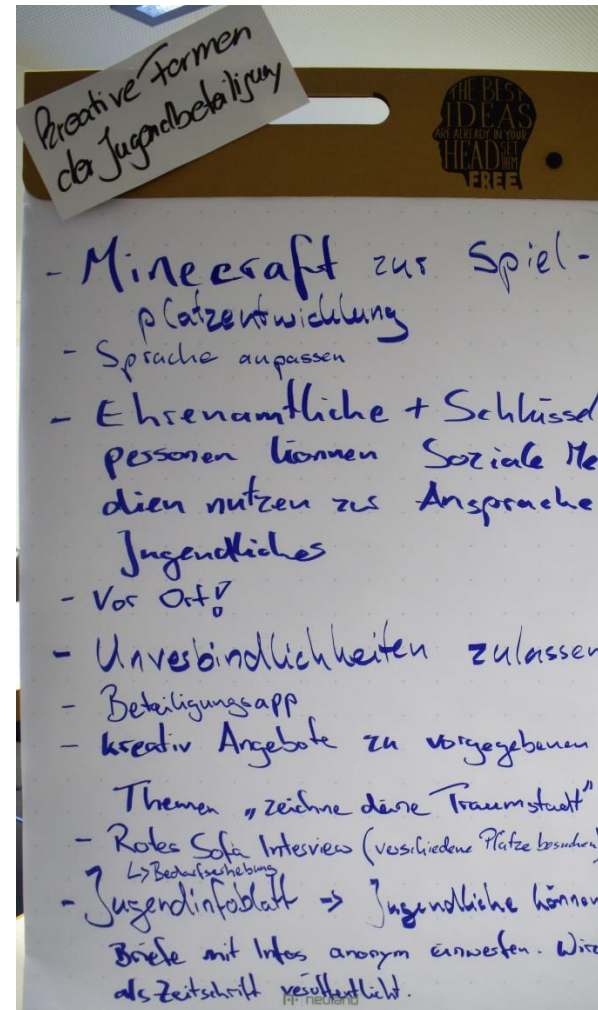 Kreative Formen
der Jugendbeteiligung
THE BEST
IDEAS
ARE ALREADY IN YOUR
HEAD SET
THEM
FREE
- Minecraft zur Spiel-
platzentwicklung
- Sprache anpassen
- Ehrenamtliche + Schlüssel
personen können Soziale Me
dien nutzen zur Ansprache
Jugendlicher
- Vor Ort!
- Unverbindlichkeiten zulassen
- Beteiligungsapp
- kreativ Angebote zu vorgegebenen
Themen „zeichne deine Traumstadt"
- Rotes Sofa Interview (verschiedene Plätze besuchen)
↳ Bedarfserhebung
- Jugendinfoblatt => Jugendliche können
Briefe mit Infos anonym einwerfen. Wird
als Zeitschrift veröffentlicht.
neuland